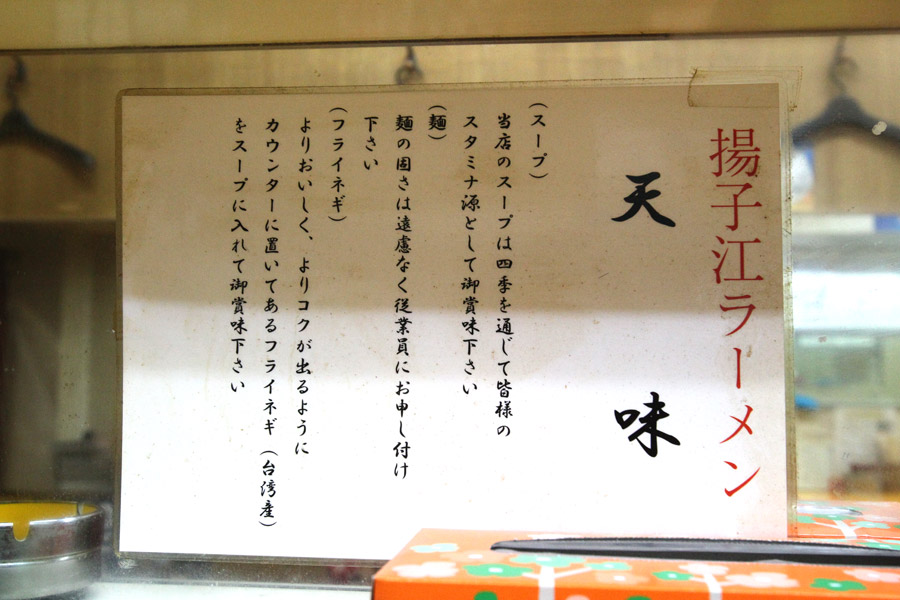 揚子江ラーメン
天味
(スープ)
当店のスープは四季を通じて皆様の
スタミナ源として御賞味下さい
(麺)
麺の固さは遠慮なく従業員にお申し付け
下さい
(フライネギ)
よりおいしく、よりコクが出るように
カウンターに置いてあるフライネギ(台湾産)
をスープに入れて御賞味下さい